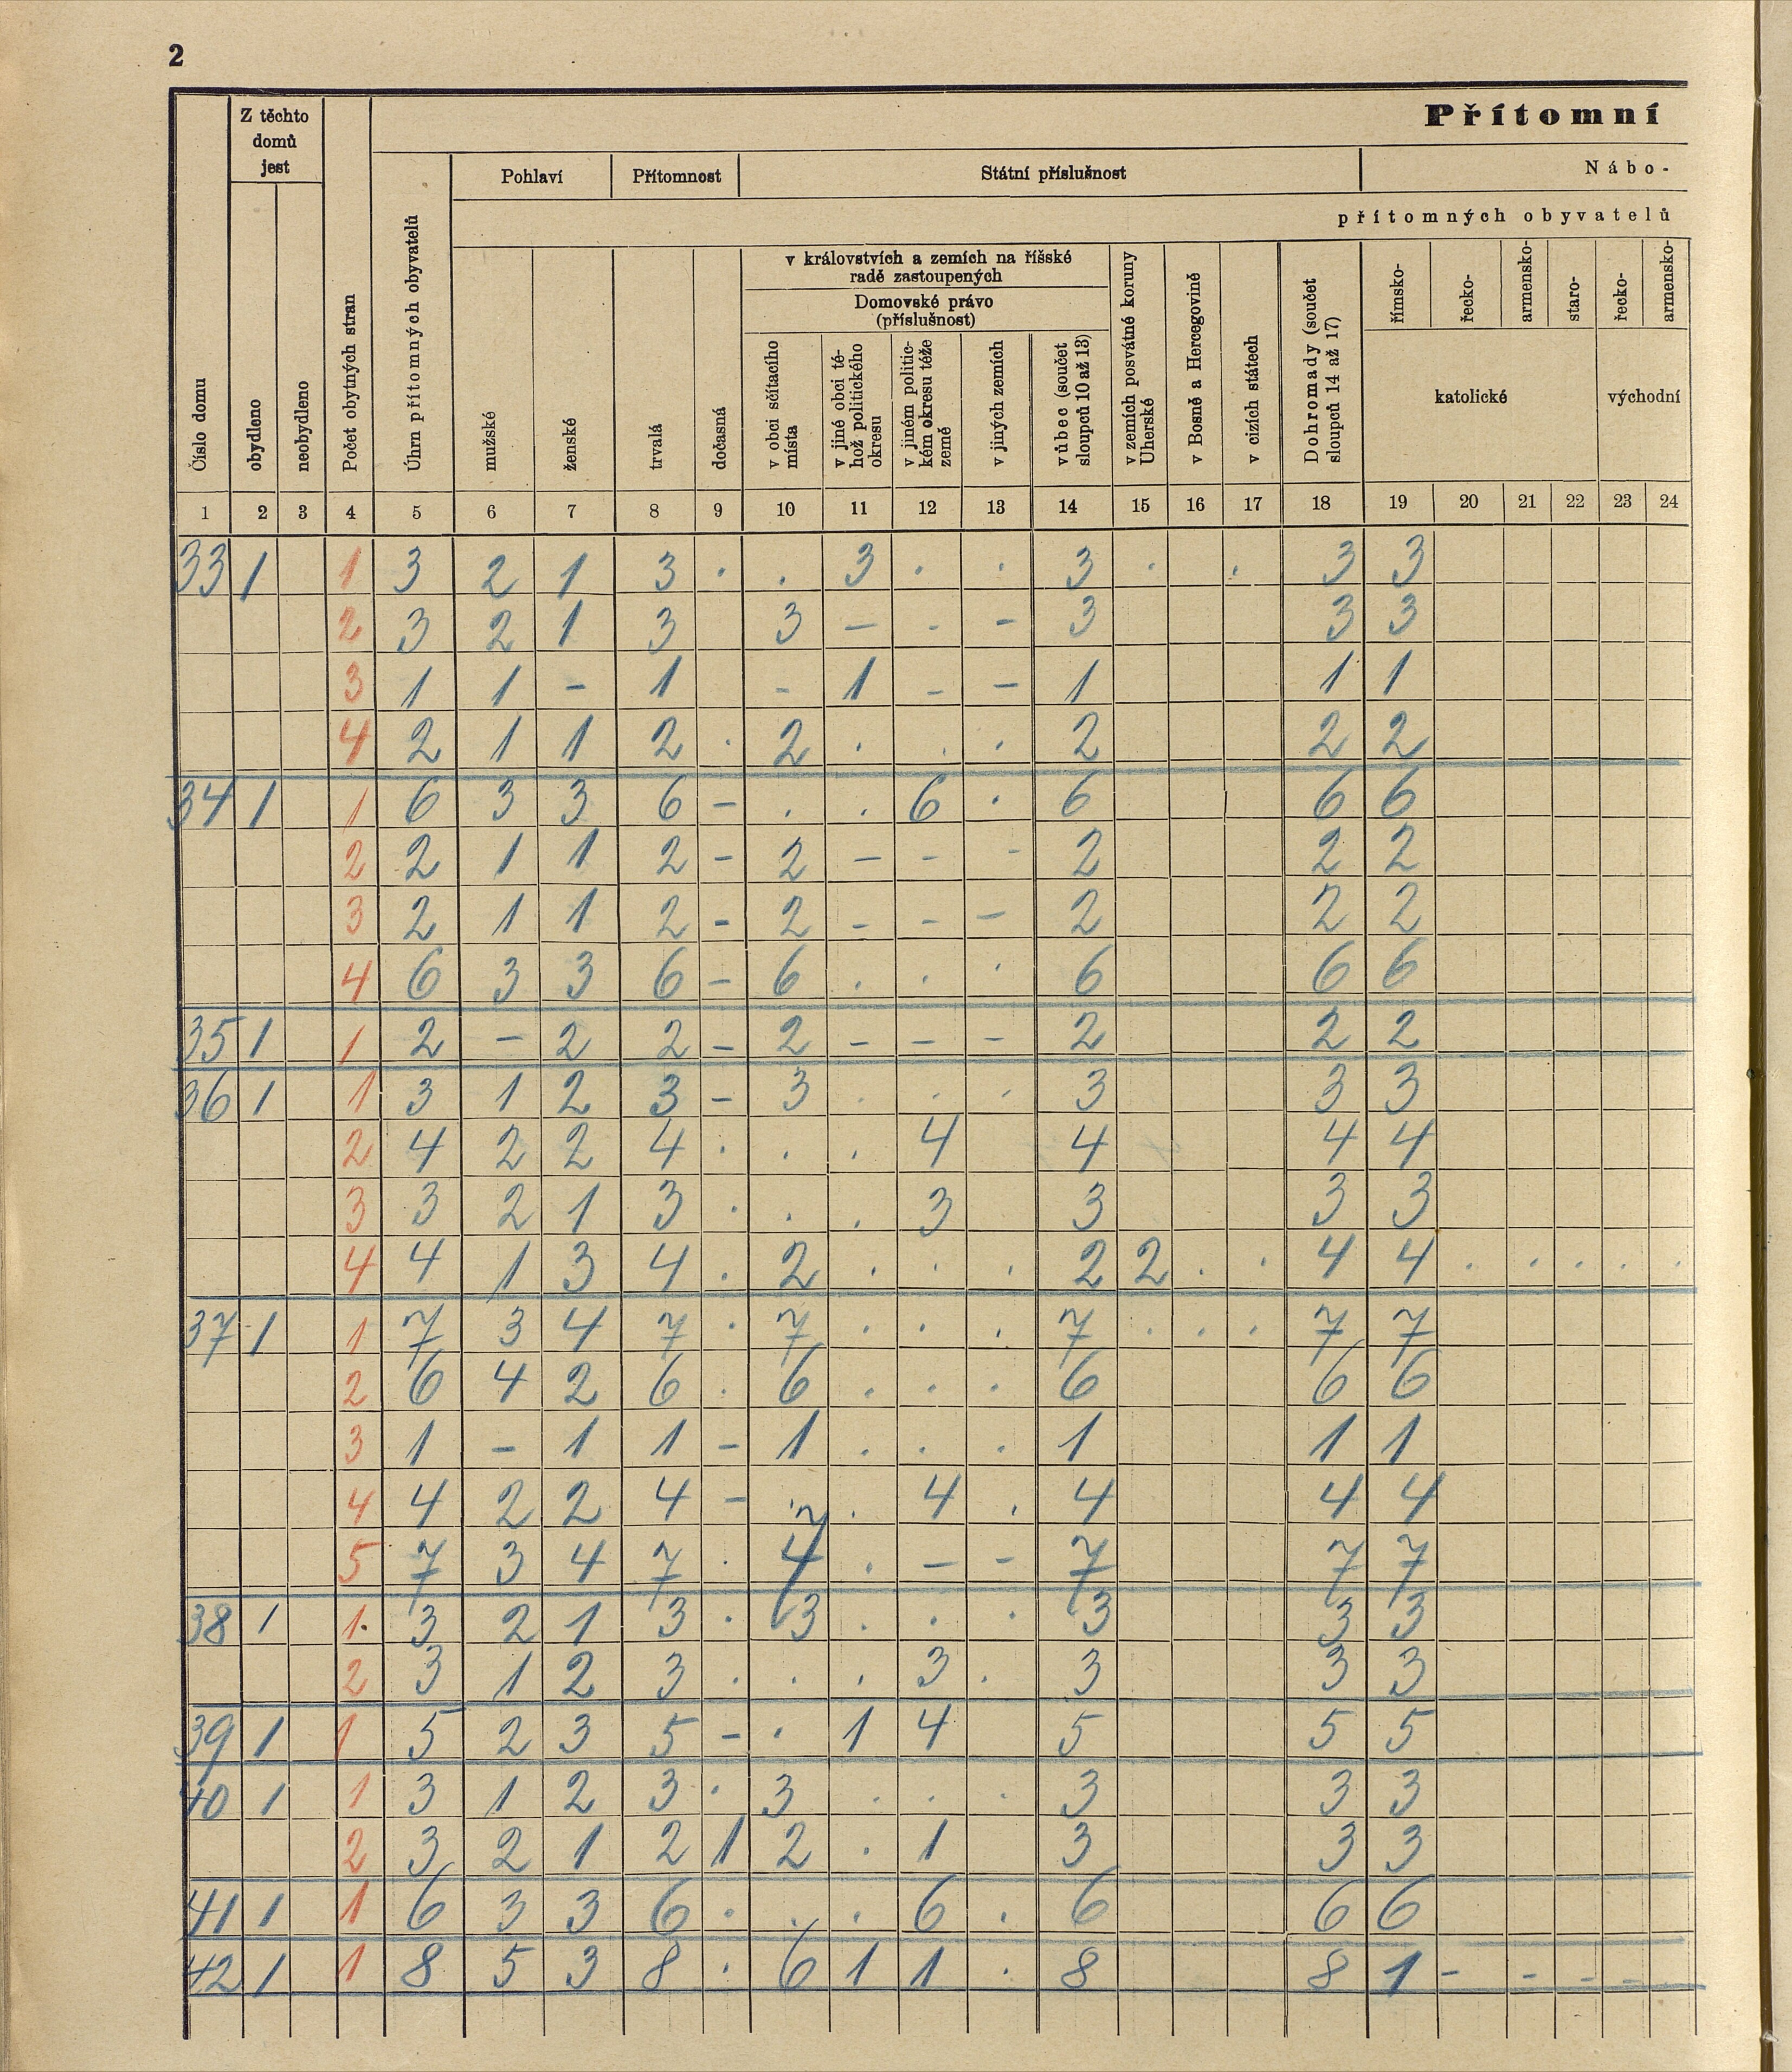 2
Přítomní
Z těchto domů jest
Pohlaví
Přítomnost
Státní příslušnost
Nábo-
přítomných obyvatelů
Číslo domu
obydleno
neobydleno
Počet obytných stran
Úhrn přítomných obyvatelů
mužské
ženské
trvalá
dočasná
v královstvích a zemích na říšské
radě zastoupených
Domovské právo
(příslušnost)
v obci sčítacího
místa
v jiné obci té-
hož politického
okresu
v jiném politic-
kém okresu téže
země
v jiných zemích
vůbec (součet
sloupců 10 až 13)
v zemích posvátné koruny
Uherské
v Bosně a Hercegovině
v cizích státech
Dohromady (součet
sloupců 14 až 17)
římsko-
řecko-
armensko-
staro-
katolické
řecko-
armensko-
východní
1 2 3 4 5 6 7 8 9 10 11 12 13 14 15 16 17 18 19 20 21 22 23 24
33 1 1 3 2 1 3 . . 3 . . 3 . . 3 3
2 3 2 1 3 3 – - - 3 3 3
3 1 1 - 1 - 1 - - 1 1 1
4 2 1 1 2 . 2 . . . 2 2 2
34 1 1 6 3 3 6 - . . 6 . 6 6 6
2 2 1 1 2 - 2 - - - 2 2 2
3 2 1 1 2 - 2 - - - 2 2 2
4 6 3 3 6 - 6 . . . 6 6 6
35 1 1 2 - 2 2 - 2 - - - 2 2 2
36 1 1 3 1 2 3 - 3 . . . 3 3 3
2 4 2 2 4 . . . 4 4 4 4
3 3 2 1 3 . . . 3 3 3 3
4 4 1 3 4 . 2 . . . 2 2 . . 4 4 . . . . .
37 1 1 7 3 4 7 . 7 . . . 7 . . . 7 7
2 6 4 2 6 . 6 . . . 6 6 6
3 1 - 1 1 - 1 . . . 1 1 1
4 4 2 2 4 - . . 4 . 4 4 4
5 7 3 4 7 . 7 . - - 7 7 7
38 1 1. 3 2 1 3 . 3 . . . 3 3 3
2 3 1 2 3 . . . 3 . 3 3 3
39 1 1 5 2 3 5 - . 1 4 5 5 5
40 1 1 3 1 2 3 . 3 . . . 3 3 3
2 3 2 1 2 1 2 . 1 3 3 3
41 1 1 6 3 3 6 . . . 6 . 6 6 6
42 1 1 8 5 3 8 . 6 1 1 . 8 8 1 - - - -